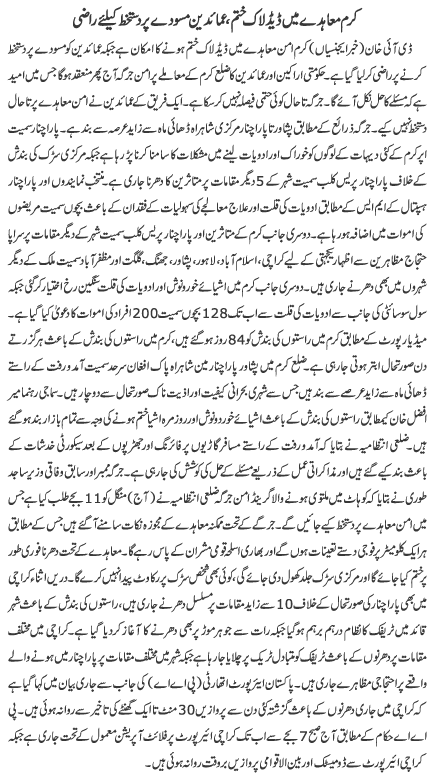 کرم معاہدے میں ڈیڈ لاک ختم، عمائدین مسودے پر دستخط کیلئے راضی
ڈی آئی خان (خبر ایجنسیاں) کرم امن معاہدے میں ڈیڈ لاک ختم ہونے کا امکان ہے جبکہ عمائدین کو مسودے پر دستخط
کرنے پر راضی کر لیا گیا ہے۔ حکومتی اراکین اور عمائدین کا ضلع کرم کے معاملے پر امن جرگہ آج پھر منعقد ہوگا جس میں امید
ہے کہ مسئلے کا حل نکل آئے گا۔ جرگہ تاحال کوئی حتمی فیصلہ نہیں کرسکا ہے۔ ایک فریق کے عمائدین نے امن معاہدے پر تاحال
دستخط نہیں کیے۔ جرگہ ذرائع کے مطابق پشاور تا پاراچنار مرکزی شاہراہ ڈھائی ماہ سے زاید عرصہ سے بند ہے۔ پاراچنار سمیت
اپر کرم کے کئی دیہات کے لوگوں کو خوراک اور ادویات لینے میں مشکلات کا سامنا کرنا پڑ رہا ہے جبکہ مرکزی سڑک کی بندش
کے خلاف پاراچنار پریس کلب سمیت شہر کے 5 دیگر مقامات پر متاثرین کا دھرنا جاری ہے۔ منتخب نمایندوں اور پاراچنار
ہسپتال کے ایم ایس کے مطابق ادویات کی قلت اور علاج معالجے کی سہولیات کے فقدان کے باعث بچوں سمیت مریضوں
کی اموات میں اضافہ ہورہا ہے۔ دوسری جانب کرم کے متاثرین اور پاراچنار پریس کلب سمیت شہر کے دیگر مقامات پر سراپا
احتجاج مظاہرین سے اظہار یکجہتی کے لیے کراچی، اسلام آباد، لاہور، پشاور، جھنگ، گلگت اور مظفرآباد سمیت ملک کے دیگر
شہروں میں بھی دھرنے جاری ہیں۔ دوسری جانب کرم میں اشیائے خورونوش اور ادویات کی قلت سنگین رخ اختیار کرگئی جبکہ
سول سوسائٹی کی جانب سے ادویات کی قلت سے اب تک 128 بچوں سمیت 200 افراد کی اموات کا دعویٰ کیا گیا ہے۔
میڈیا رپورٹ کے مطابق کرم میں راستوں کی بندش کو 84 روز ہوگئے ہیں، کرم میں راستوں کی بندش کے باعث ہر گزرتے
دن صورتحال ابتر ہوتی جارہی ہے۔ ضلع کرم میں پشاور پاراچنار مین شاہراہ پاک افغان سرحد سمیت آمد و رفت کے راستے
ڈھائی ماہ سے زاید عرصے سے بند ہیں جس سے شہری بحرانی کیفیت اور اذیت ناک صورتحال سے دوچار ہیں۔ سماجی رہنما میر
افضل خان کیمطابق راستوں کی بندش کے باعث اشیائے خوردونوش اور روزمرہ اشیا ختم ہونے کی وجہ سے تمام بازار بند ہوگئے
ہیں۔ ضلعی انتظامیہ نے بتایا کہ آمد و رفت کے راستے مسافر گاڑیوں پر فائرنگ اور جھڑپوں کے بعد سیکورٹی خدشات کے
باعث بند کیے گئے ہیں اور مذاکراتی عمل کے ذریعے مسئلے کے حل کی کوشش کی جارہی ہے۔ جرگہ ممبر اور سابق وفاقی وزیر ساجد
طوری نے بتایا کہ کوہاٹ میں ملتوی ہونے والا گرینڈ امن جرگہ ضلعی انتظامیہ نے (آج) منگل کو 11 بجے طلب کیا ہے جس
میں امن معاہدے پر دستخط کیے جائیں گے۔ جرگے کے تحت ممکنہ معاہدے کے مجوزہ نکات سامنے آگئے ہیں جس کے مطابق
ہر ایک کلومیٹر پر فوجی دستے تعینات ہوں گے اور بھاری اسلحہ قومی مشران کے پاس رہے گا۔ معاہدے کے تحت دھرنا فوری طور
پر ختم کیا جائے گا اور مرکزی سڑک جلد کھول دی جائے گی، کوئی بھی شخص سڑک پر رکاوٹ پیدا نہیں کرے گا۔ دریں اثنا کراچی
میں بھی پاراچنار کی صورتحال کے خلاف 10 سے زاید مقامات پر مسلسل دھرنے جاری ہیں، راستوں کی بندش کے باعث شہر
قائد میں ٹریفک کا نظام درہم برہم ہوگیا جبکہ رات سے جوہر موڑ پر بھی دھرنے کا آغاز کر دیا گیا ہے۔ کراچی میں مختلف
مقامات پر دھرنوں کے باعث ٹریفک کو متبادل ٹریک پر چلایا جارہا ہے جبکہ شہر میں مختلف مقامات پر پاراچنار میں ہونے والے
واقعے پر احتجاجی مظاہرے جاری ہیں۔ پاکستان ایئرپورٹ اتھارٹی (پی اے اے) کی جانب سے جاری بیان میں کہا گیا ہے
کہ کراچی میں دھرنوں کے باعث گزشتہ کئی دن سے پروازیں 30 منٹ تا ایک گھنٹے کی تاخیر سے روانہ ہوئی ہیں۔ پی
اے اے حکام کے مطابق آج صبح 7 بجے سے اب تک کراچی ائیرپورٹ پر فلائٹ آپریشن معمول کے تحت جاری ہے جبکہ
کراچی ائیرپورٹ سے ڈومیسٹک اور بین الاقوامی پروازیں بروقت روانہ ہوئی ہیں۔